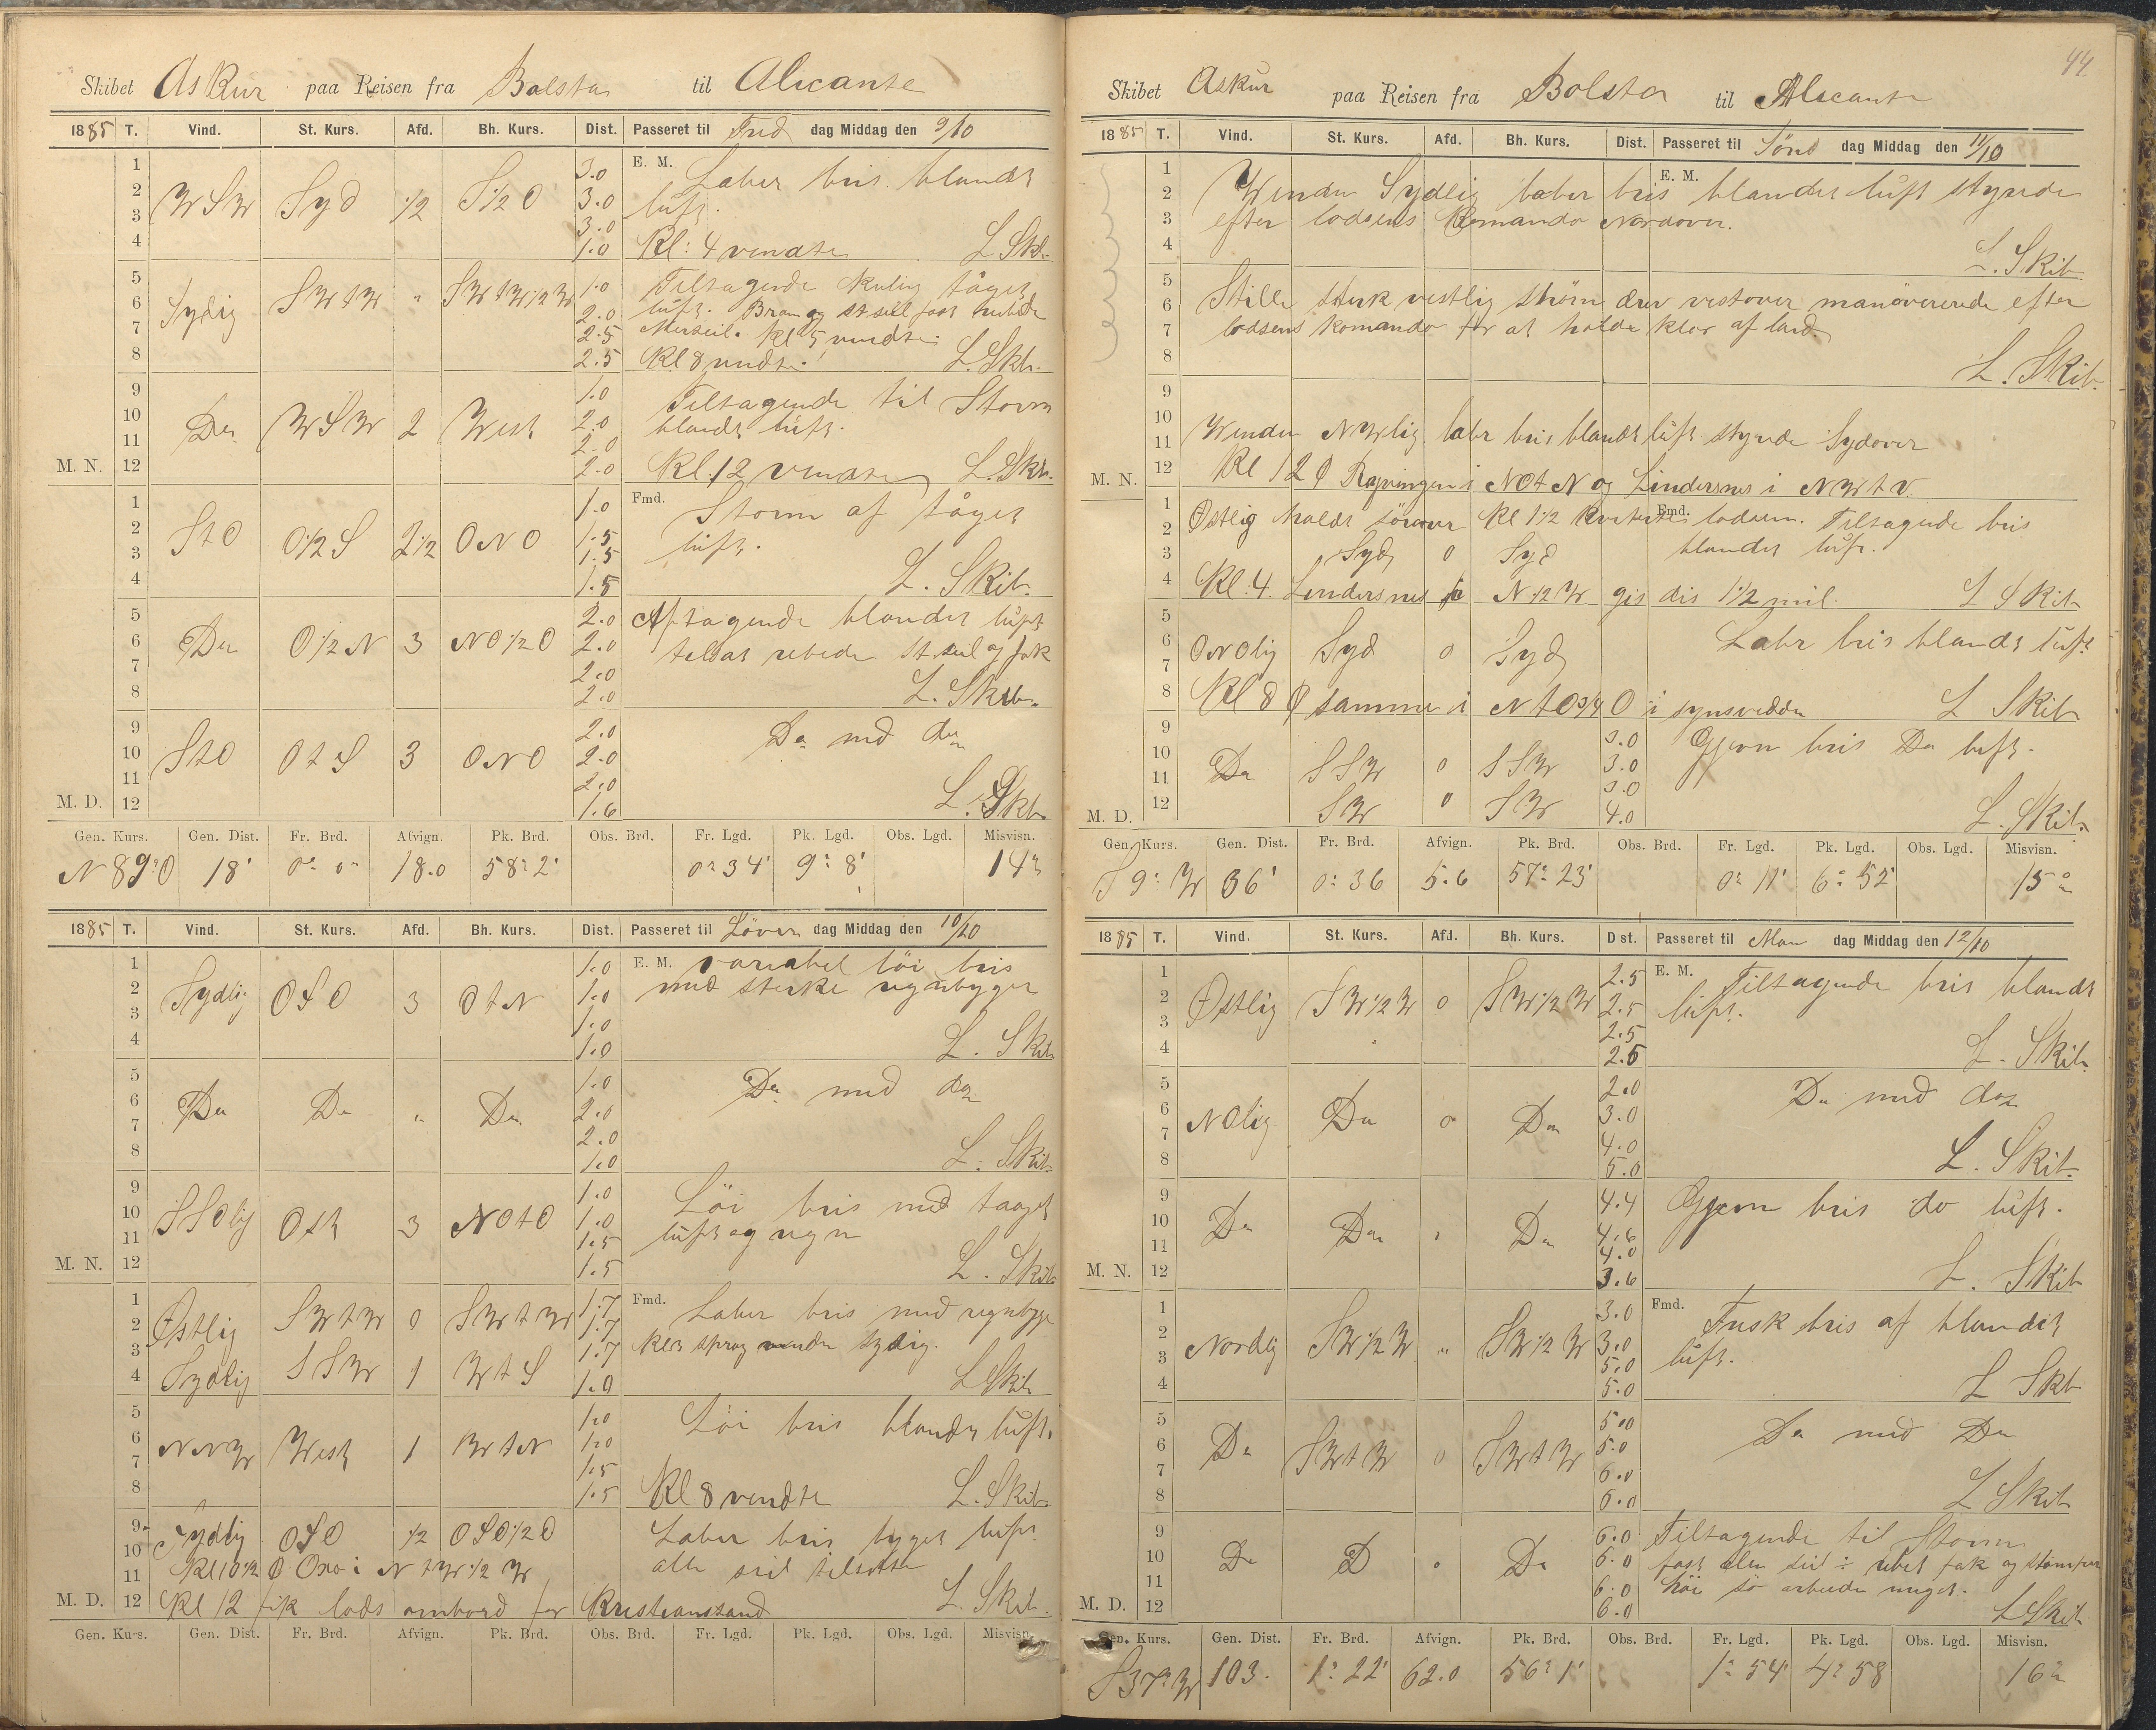 Skibet Askur paa Reisen fra Bolsta til Alicante
1885 T. Vind. St. Kurs. Afd. Bh. Kurs. Dist. Passeret til Fred dag Middag den 9/10
1 3.0 E. M. Laber bris blandt
2 WSW Syd 1/2 S1/2O 3.0 luft.
3 3.0
4 1.0 Kl: 4 vendte L Skb.
5 SWtW " SWtW1/2W 1.0 Tiltagende kuling tåget
6 Sydlig 2.0 luft. Bram og st.seil fast rebede
7 2.5 Merseil. Kl 5 vendte
8 2.5 Kl 8 vendte. L. Skb.
9 1.0 Tiltagende til Storm
10 Do WSW 2 West 2.0 blandt luft.
11 2.0
M. N. 12 2.0 Kl. 12 vendte L. Skb.
1 1.0 Fmd. Storm af tåget
2 StO O1/2S 2 1/2 ONO 1.5 luft.
3 1.5
4 1.5 L. Skib.
5 2.0 Aftagende blandet luft
6 Do O1/2N 3 NO1/2O 2.0 tilsat rebede St.seil og fok
7 2.0
8 2.0 L. Skib.
9 2.0 Do med do
10 StO OtS 3 ONO 2.0
11 2.0
M. D. 12 1.6 L. Skb.
Gen. Kurs. Gen. Dist. Fr. Brd. Afvign. Pk. Brd. Obs. Brd. Fr. Lgd. Pk. Lgd. Obs. Lgd. Misvisn.
N 89° O 18' 0° 0' 18.0 58° 2' 0° 34' 9° 8' 14°
1885 T. Vind. St. Kurs. Afd. Bh. Kurs. Dist. Passeret til Löver dag Middag den 10/10
1 1.0 E. M. variabel löi bris
2 Sydlig OSO 3 OtN 1.0 med sterke regnbyger
3 1.0
4 1.0 L. Skib
5 1.0 Do med do
6 Do Do " Do 2.0
7 2.0
8 1.0 L. Skib
9 1.0 Löi bris med taaget
10 SSOlig Ost 3 NOtO 1.0 luft og regn
11 1.5
M. N. 12 1.5 L. Skib
1 1.7 Fmd. Laber bris med regnbyge
2 Østlig SWtW 0 SWtW 1.7
3 1.7 Kl 3 sprag vinden Sydlig.
4 Sydlig SSW 1 WtS 1.0 L Skib
5 1.0 Löi bris blandt luft.
6 NNW West 1 WtN 1.0
7 1.5
8 1.5 Kl 8 vendte L. Skib.
9 Sydlig OSO 1/2 OSO1/2O Laber bris byget luft
10 alle seil tilsatte
11 Kl 10 1/2 Oxo i NtW1/2W
M. D. 12 Kl 12 fik lods ombord for Kristianssand L. Skib.
Gen. Kurs. Gen. Dist. Fr. Brd. Afvign. Pk. Brd. Obs. Brd. Fr. Lgd. Pk. Lgd. Obs. Lgd. Misvisn.
44
Skibet Askur paa Reisen fra Bolsta til Alicante
1885 T. Vind. St. Kurs. Afd. Bh. Kurs. Dist. Passeret til Sönd dag Middag den 11/10
1 E. M.
2 Vinden Sydlig laber bris blandet luft styrede
3 efter lodsens Komando Nordover.
4 L. Skib.
5
6 Stille sterk vestlig ström drev vestover manövererede efter
7 lodsens Komando for at holde klar af land.
8 L. Skib.
9
10
11 Vinden NWlig labr bris blandt luft styrede Sydover
M. N. 12 Kl 12 Ryvingen i NOtN og Lindersnes i NWtV.
1 Fmd.
2 Østlig holdt sörover Kl 1 1/2 kviterte lodsen. Tiltagende bris
3 Syd 0 Syd blandet luft.
4 Kl. 4. Lindersnes N1/2W gis dis 1 1/2 mil. L Skib
5
6 ONOlig Syd 0 Syd Labr bris blandt luft
7
8 Kl 8 samme i NtO3/4O i synsvidde L Skib
9 3.0 Gjevn bris Do luft.
10 Do SSW 0 SSW 3.0
11 3.0
M. D. 12 SW 0 SW 4.0 L. Skib
Gen. Kurs. Gen. Dist. Fr. Brd. Afvign. Pk. Brd. Obs. Brd. Fr. Lgd. Pk. Lgd. Obs. Lgd. Misvisn.
S 9° W 36' 0° 36 5.6 57° 23' 0° 11' 6° 52' 15°
1885 T. Vind. St. Kurs. Afd. Bh. Kurs. D st. Passeret til Man dag Middag den 12/10
1 2.5 E. M. Tiltagende bris blandt
2 Østlig SW1/2W 0 SW1/2W 2.5 luft.
3 2.5
4 2.5 L. Skib.
5 2.0 Do med do
6 NOlig Do 0 Do 3.0
7 4.0
8 5.0 L. Skib
9 4.4 Gjevn bris do luft.
10 Do Do " Do 4.6
11 4.0
M. N. 12 3.6 L. Skib
1 3.0 Fmd. Frisk bris af blandet
2 Nordlig SW1/2W " SW1/2W 3.0 luft.
3 5.0
4 5.0 L Skb
5 5.0 Do med Do
6 Do SWtW 0 SWtW 5.0
7 6.0
8 6.0 L Skib
9 6.0 Tiltagende til Storm
10 Do D " Do 6.0 fast alle seil ÷ rebet fok og
11 6.0 höi sö arbeide meget.
M. D. 12 6.0 L Skib.
Gen. Kurs. Gen. Dist. Fr. Brd. Afvign. Pk. Brd. Obs. Brd. Fr. Lgd. Pk. Lgd. Obs. Lgd. Misvisn.
S 37° W 103. 1° 22' 62.0 56° 1' 1° 54' 4° 58 16°